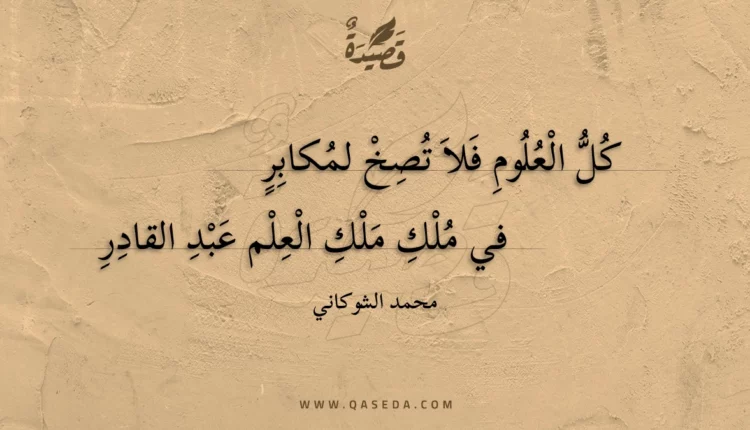 قَصِيدَةٌ
كُلُّ الْعُلُومِ فَلاَ تُصِخْ لمُكابِرٍ
في مُلْكِ مَلْكِ الْعِلْم عَبْدِ القادِرِ
محمد الشوكاني
WWW.QASEDA.COM